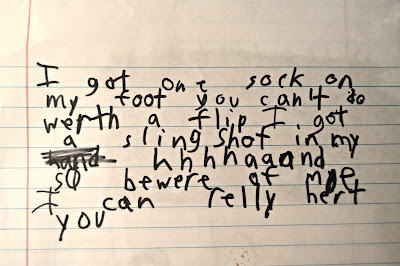 I got one sock on
my foot you can't do
werth a flip I got
a sling shot in my
hand hhhhaaand
so bewere of me
I can relly hert
you